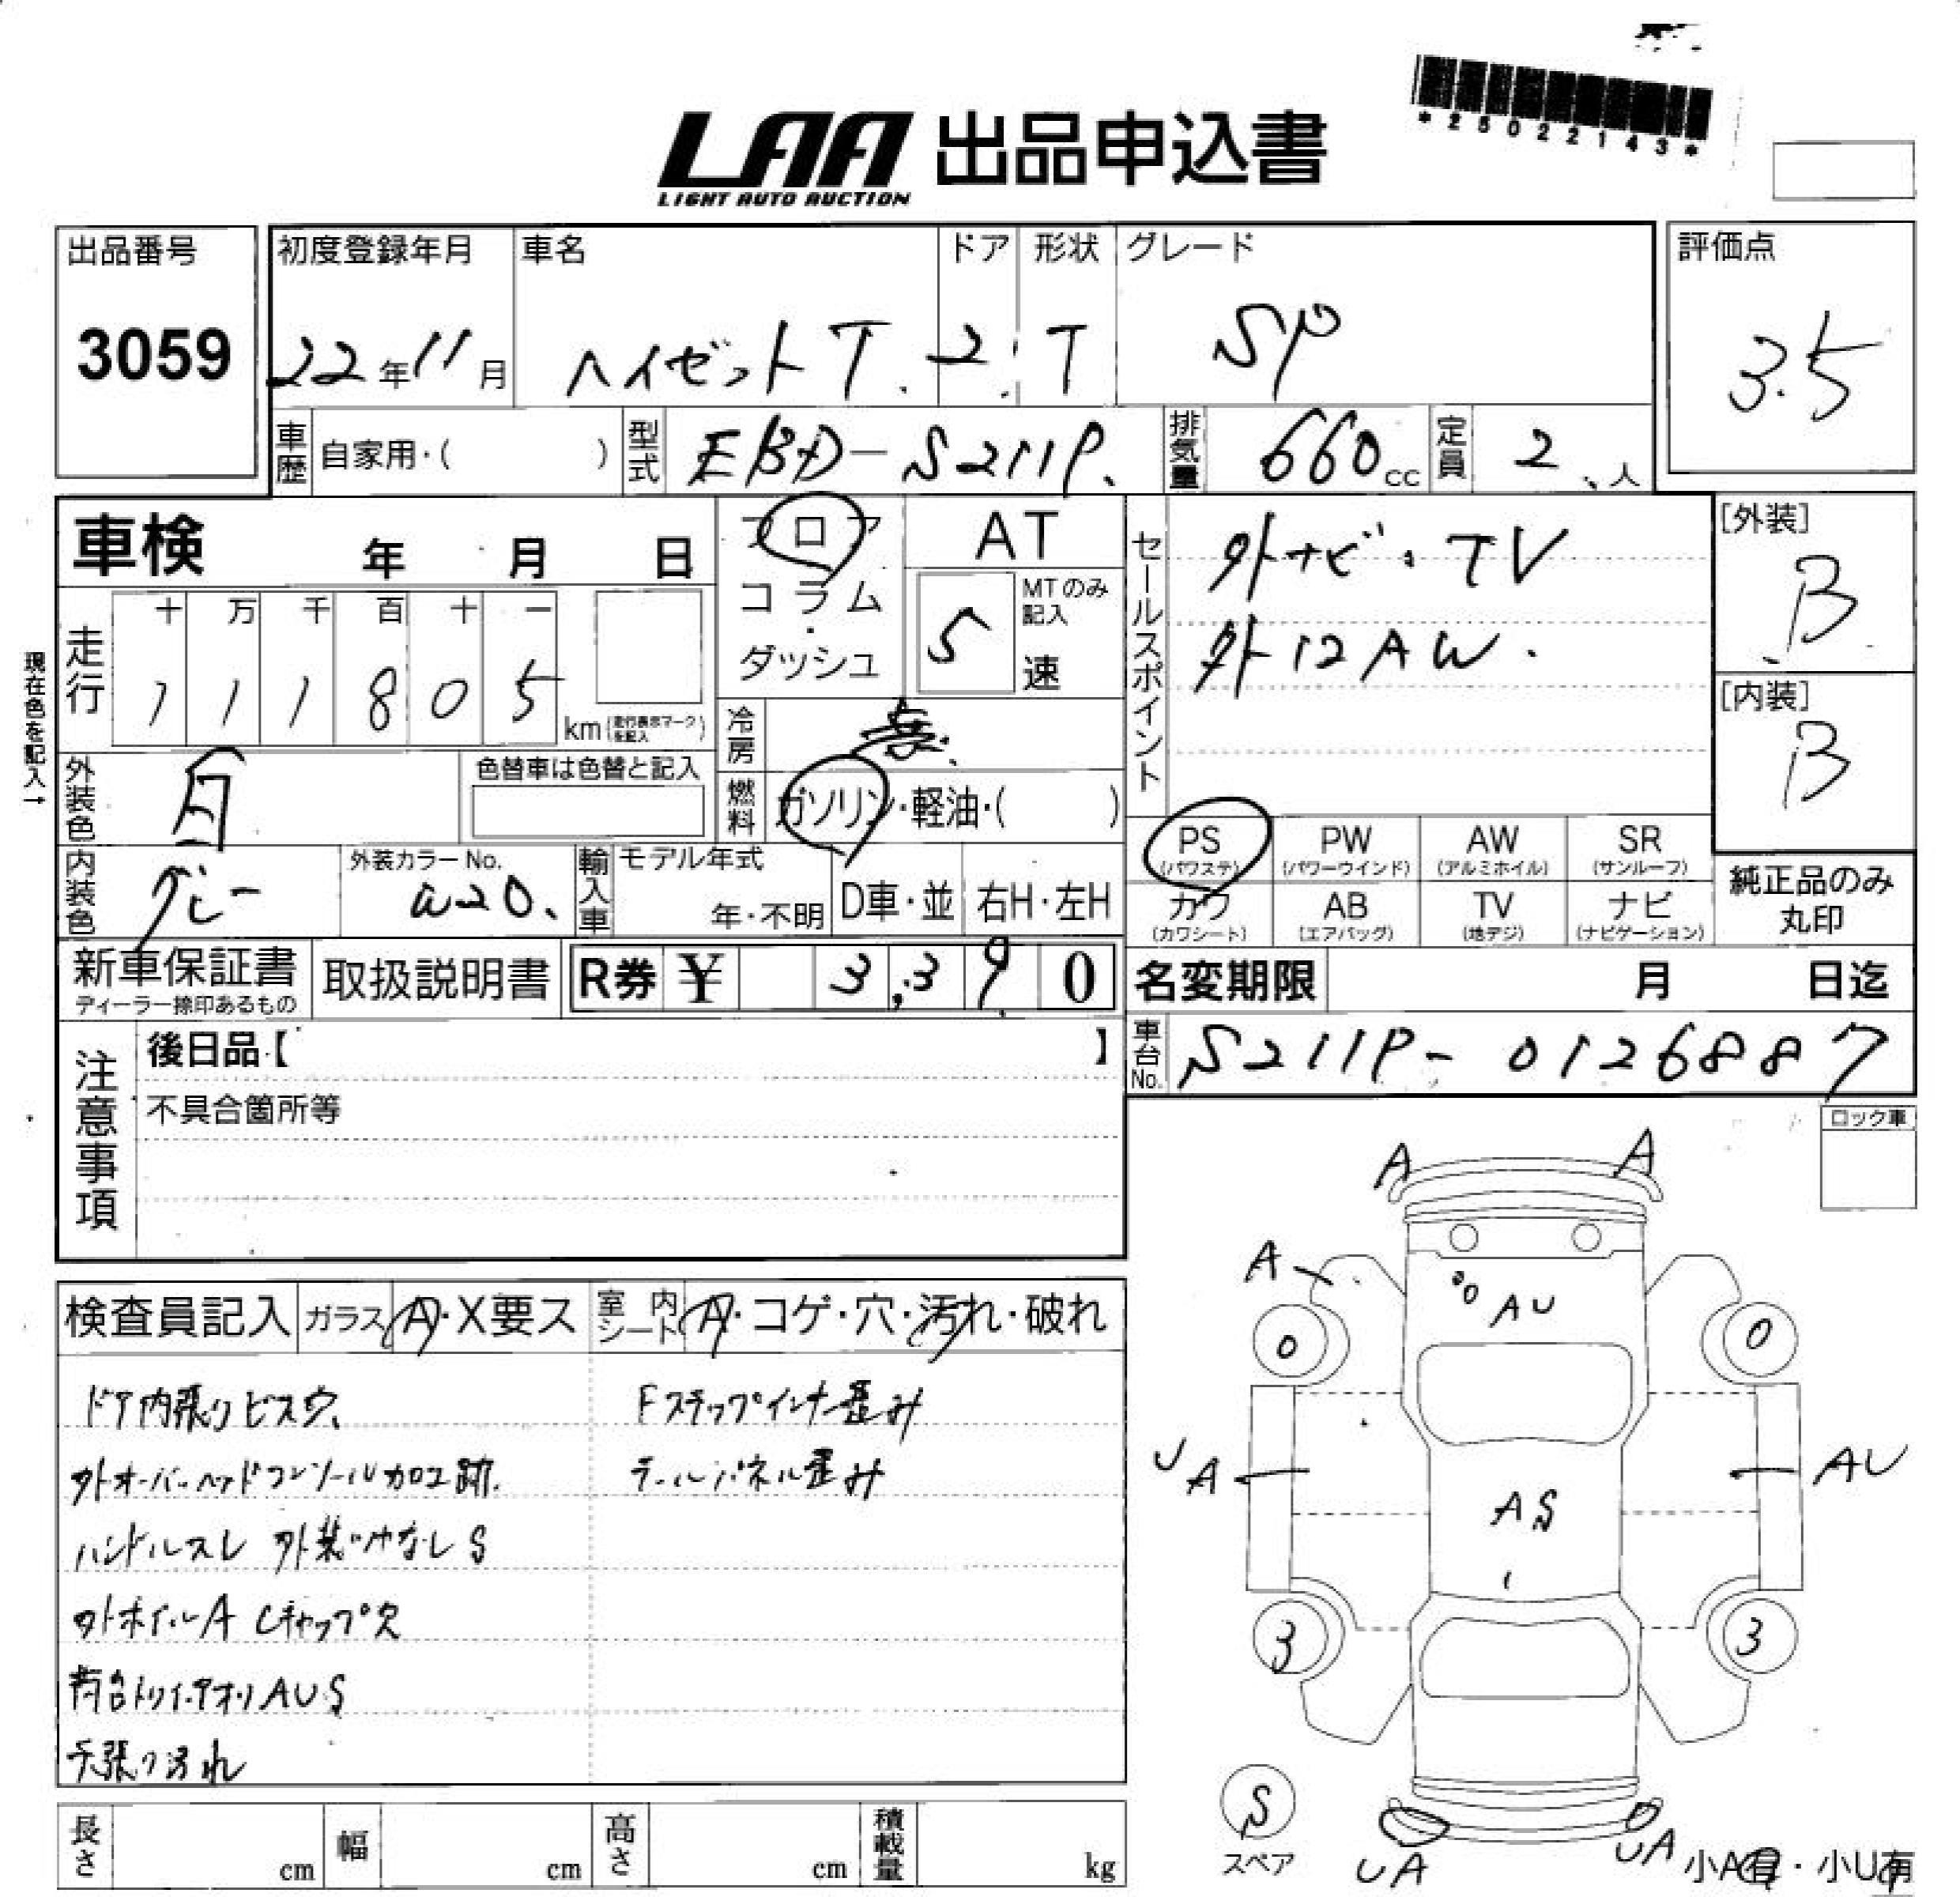 *25022143*
LAA 出品申込書
LIGHT AUTO AUCTION
出品番号
3059
初度登録年月
22年11月
車名
ハイゼットT.
ドア
2
形状
T
グレード
SP
評価点
3.5
車歴
自家用・( )
型式
EBD-S211P.
排気量
660cc
定員
2人
車検 年 月 日
フロア
コラム
・
ダッシュ
AT
5
MTのみ
記入
速
セールスポイント
外ナビ・TV
外12AW.
[外装]
B
[内装]
B
現在色を記入→
走行
十 万 千 百 十 一
1 1 1 8 0 5
km(走行表示マークを記入)
冷房
燃料
ガソリン・軽油・( )
外装色
白
色替車は色替と記入
内装色
グレー
外装カラーNo.
W20.
輸入車
モデル年式
年・不明
D車・並
右H・左H
PS
(パワステ)
PW
(パワーウインド)
AW
(アルミホイル)
SR
(サンルーフ)
カワ
(カワシート)
AB
(エアバッグ)
TV
(地デジ)
ナビ
(ナビゲーション)
純正品のみ
丸印
新車保証書
ディーラー捺印あるもの
取扱説明書
R券 ¥ 3,390
名変期限 月 日迄
車台No.
S211P-0126887
注意事項
後日品【 】
不具合箇所等
ロック車
検査員記入
ガラス A・X要ス
室内シート A・コゲ・穴・汚れ・破れ
ドア内張りビス穴
Fステップインナー歪み
外オーバーヘッドコンソール加工跡.
テールパネル歪み
ハンドルスレ
外ホイルA Cキャップ欠
荷台トリイ.アオリAUS
天張り汚れ
A
A
A
AU
0
0
UA
AU
AS
3
3
S
スペア
UA
UA
小A有・小U有
長さ cm
幅 cm
高さ cm
積載量 kg